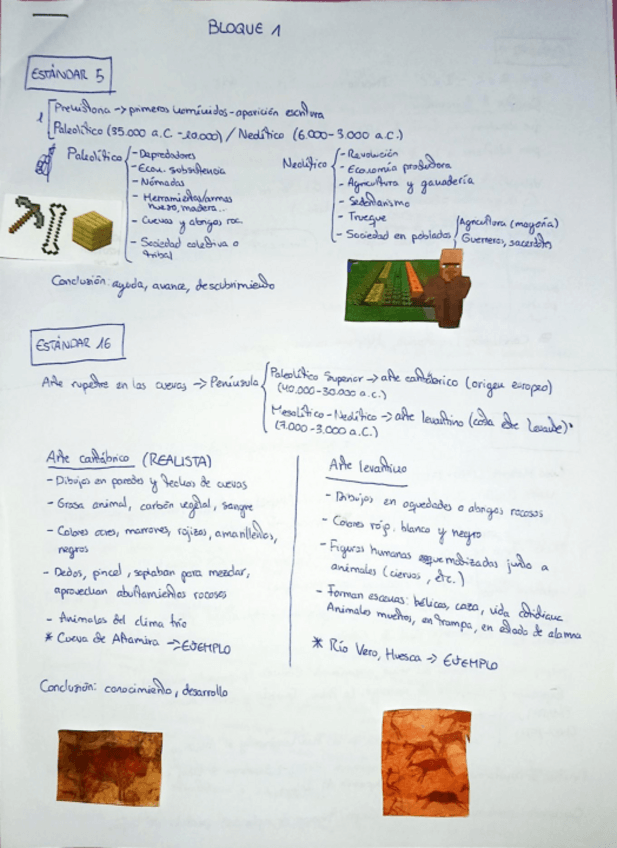 BLOQUE 1
ESTÁNDAR 5
1 Prehistoria → primeros homínidos - aparición escritura
Paleolítico (35.000 a.C. - 10.000) / Neolítico (6.000 - 3.000 a.C.)
Paleolítico
- Depredadores
- Econ. subsistencia
- Nómadas
- Herramientas/armas
hueso, madera...
- Cuevas y abrigos roc.
- Sociedad colectiva o
tribal
Neolítico
- Revolución
- Economía productora
- Agricultura y ganadería
- Sedentarismo
- Trueque
- Sociedad en poblados
Agricultura (mayoría)
Guerreros, sacerdotes
Conclusión: ayuda, avance, descubrimiento
ESTÁNDAR 16
Arte rupestre en las cuevas → Península
Paleolítico Superior → arte cantábrico (origen europeo)
(40.000 - 30.000 a.c.)
Mesolítico - Neolítico → arte levantino (costa este Levante)*
(7.000 - 3.000 a.C.)
Arte cantábrico (REALISTA)
- Dibujos en paredes y techos de cuevas
- Grasa animal, carbón vegetal, sangre
- Colores ocres, marrones, rojizos, amarillentos,
negros
- Dedos, pincel, soplaban para mezclar,
aprovechan abultamientos rocosos
- Animales del clima frío
* Cueva de Altamira → EJEMPLO
Arte levantino
- Dibujos en oquedades o abrigos rocosos
- Colores rojo, blanco y negro
- Figuras humanas esquematizadas junto a
animales (ciervos, etc.)
- Forman escenas: bélicas, caza, vida cotidiana
Animales muertos, en trampa, en estado de alarma
* Río Vero, Huesca → EJEMPLO
Conclusión: conocimiento, desarrollo